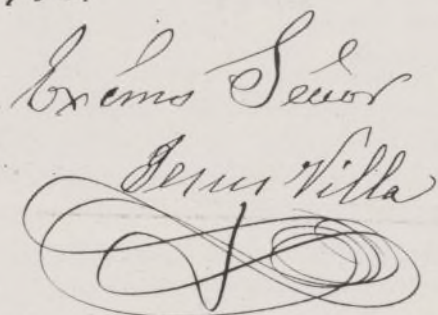 Excmo Señor
Jesus Villa